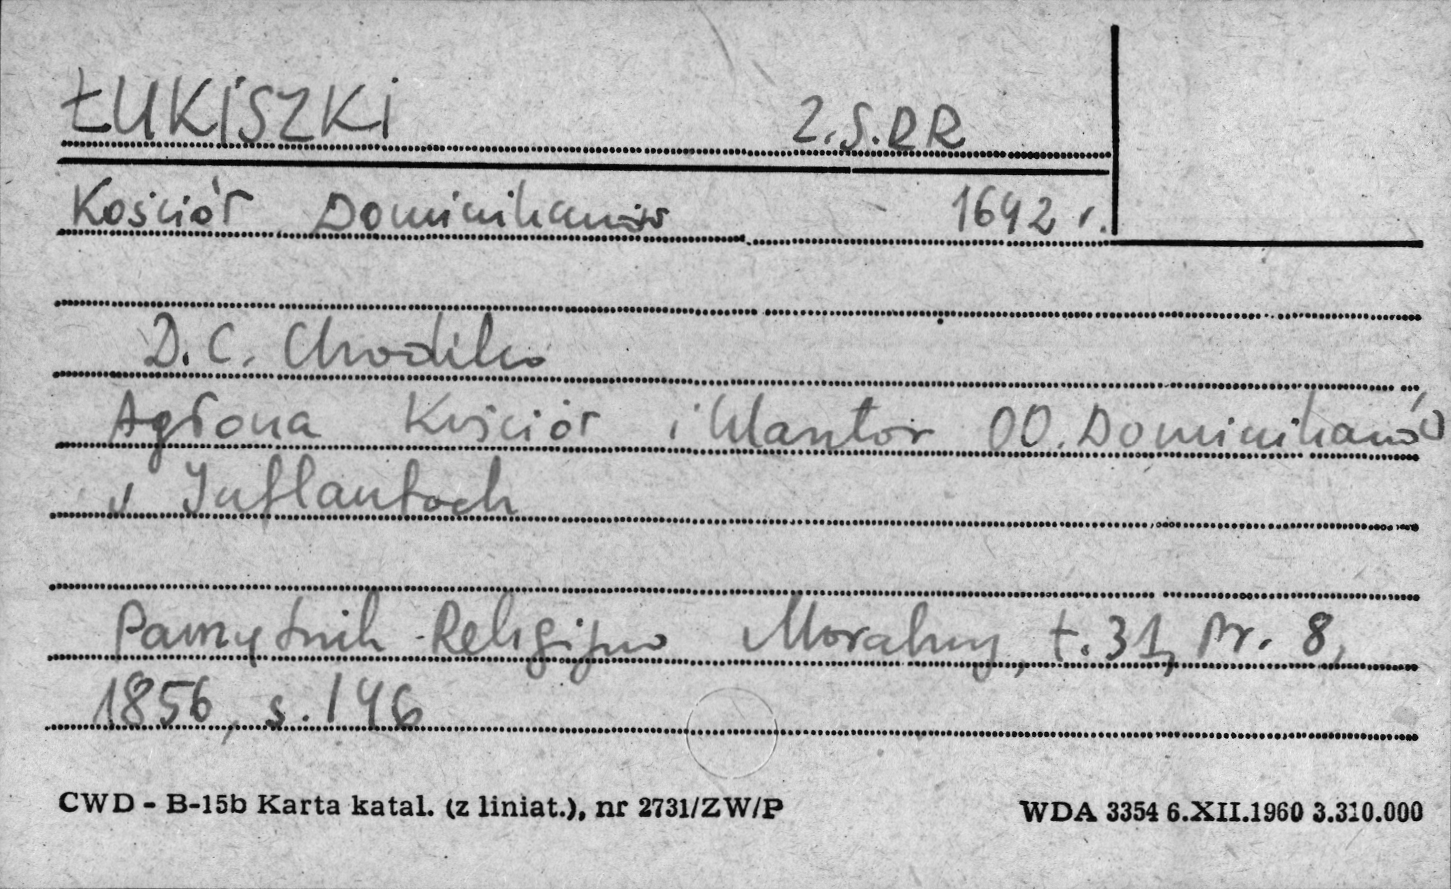 ŁUKISZKI Z.S.R.R
Kościół Dominikanów 1642 r.
D. C. Chodźko
Agłona Kościół i klasztor OO. Dominikanów
w Inflantach
Pamiętnik Religijno Moralny, t. 31, Nr. 8,
1856, s. 146
CWD - B-15b Karta katal. (z liniat.), nr 2731/ZW/P WDA 3354 6.XII.1960 3.310.000